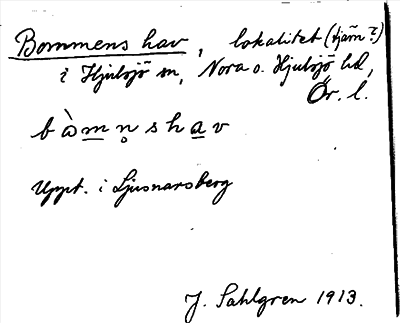 Bommens hav, lokalitet (tjärn?)
i Hjulsjö sn, Nora o. Hjulsjö hd,
Ör. l.
bò̀m̲n̥sha̲v
Uppt. i Ljusnarsberg
J. Sahlgren 1913.